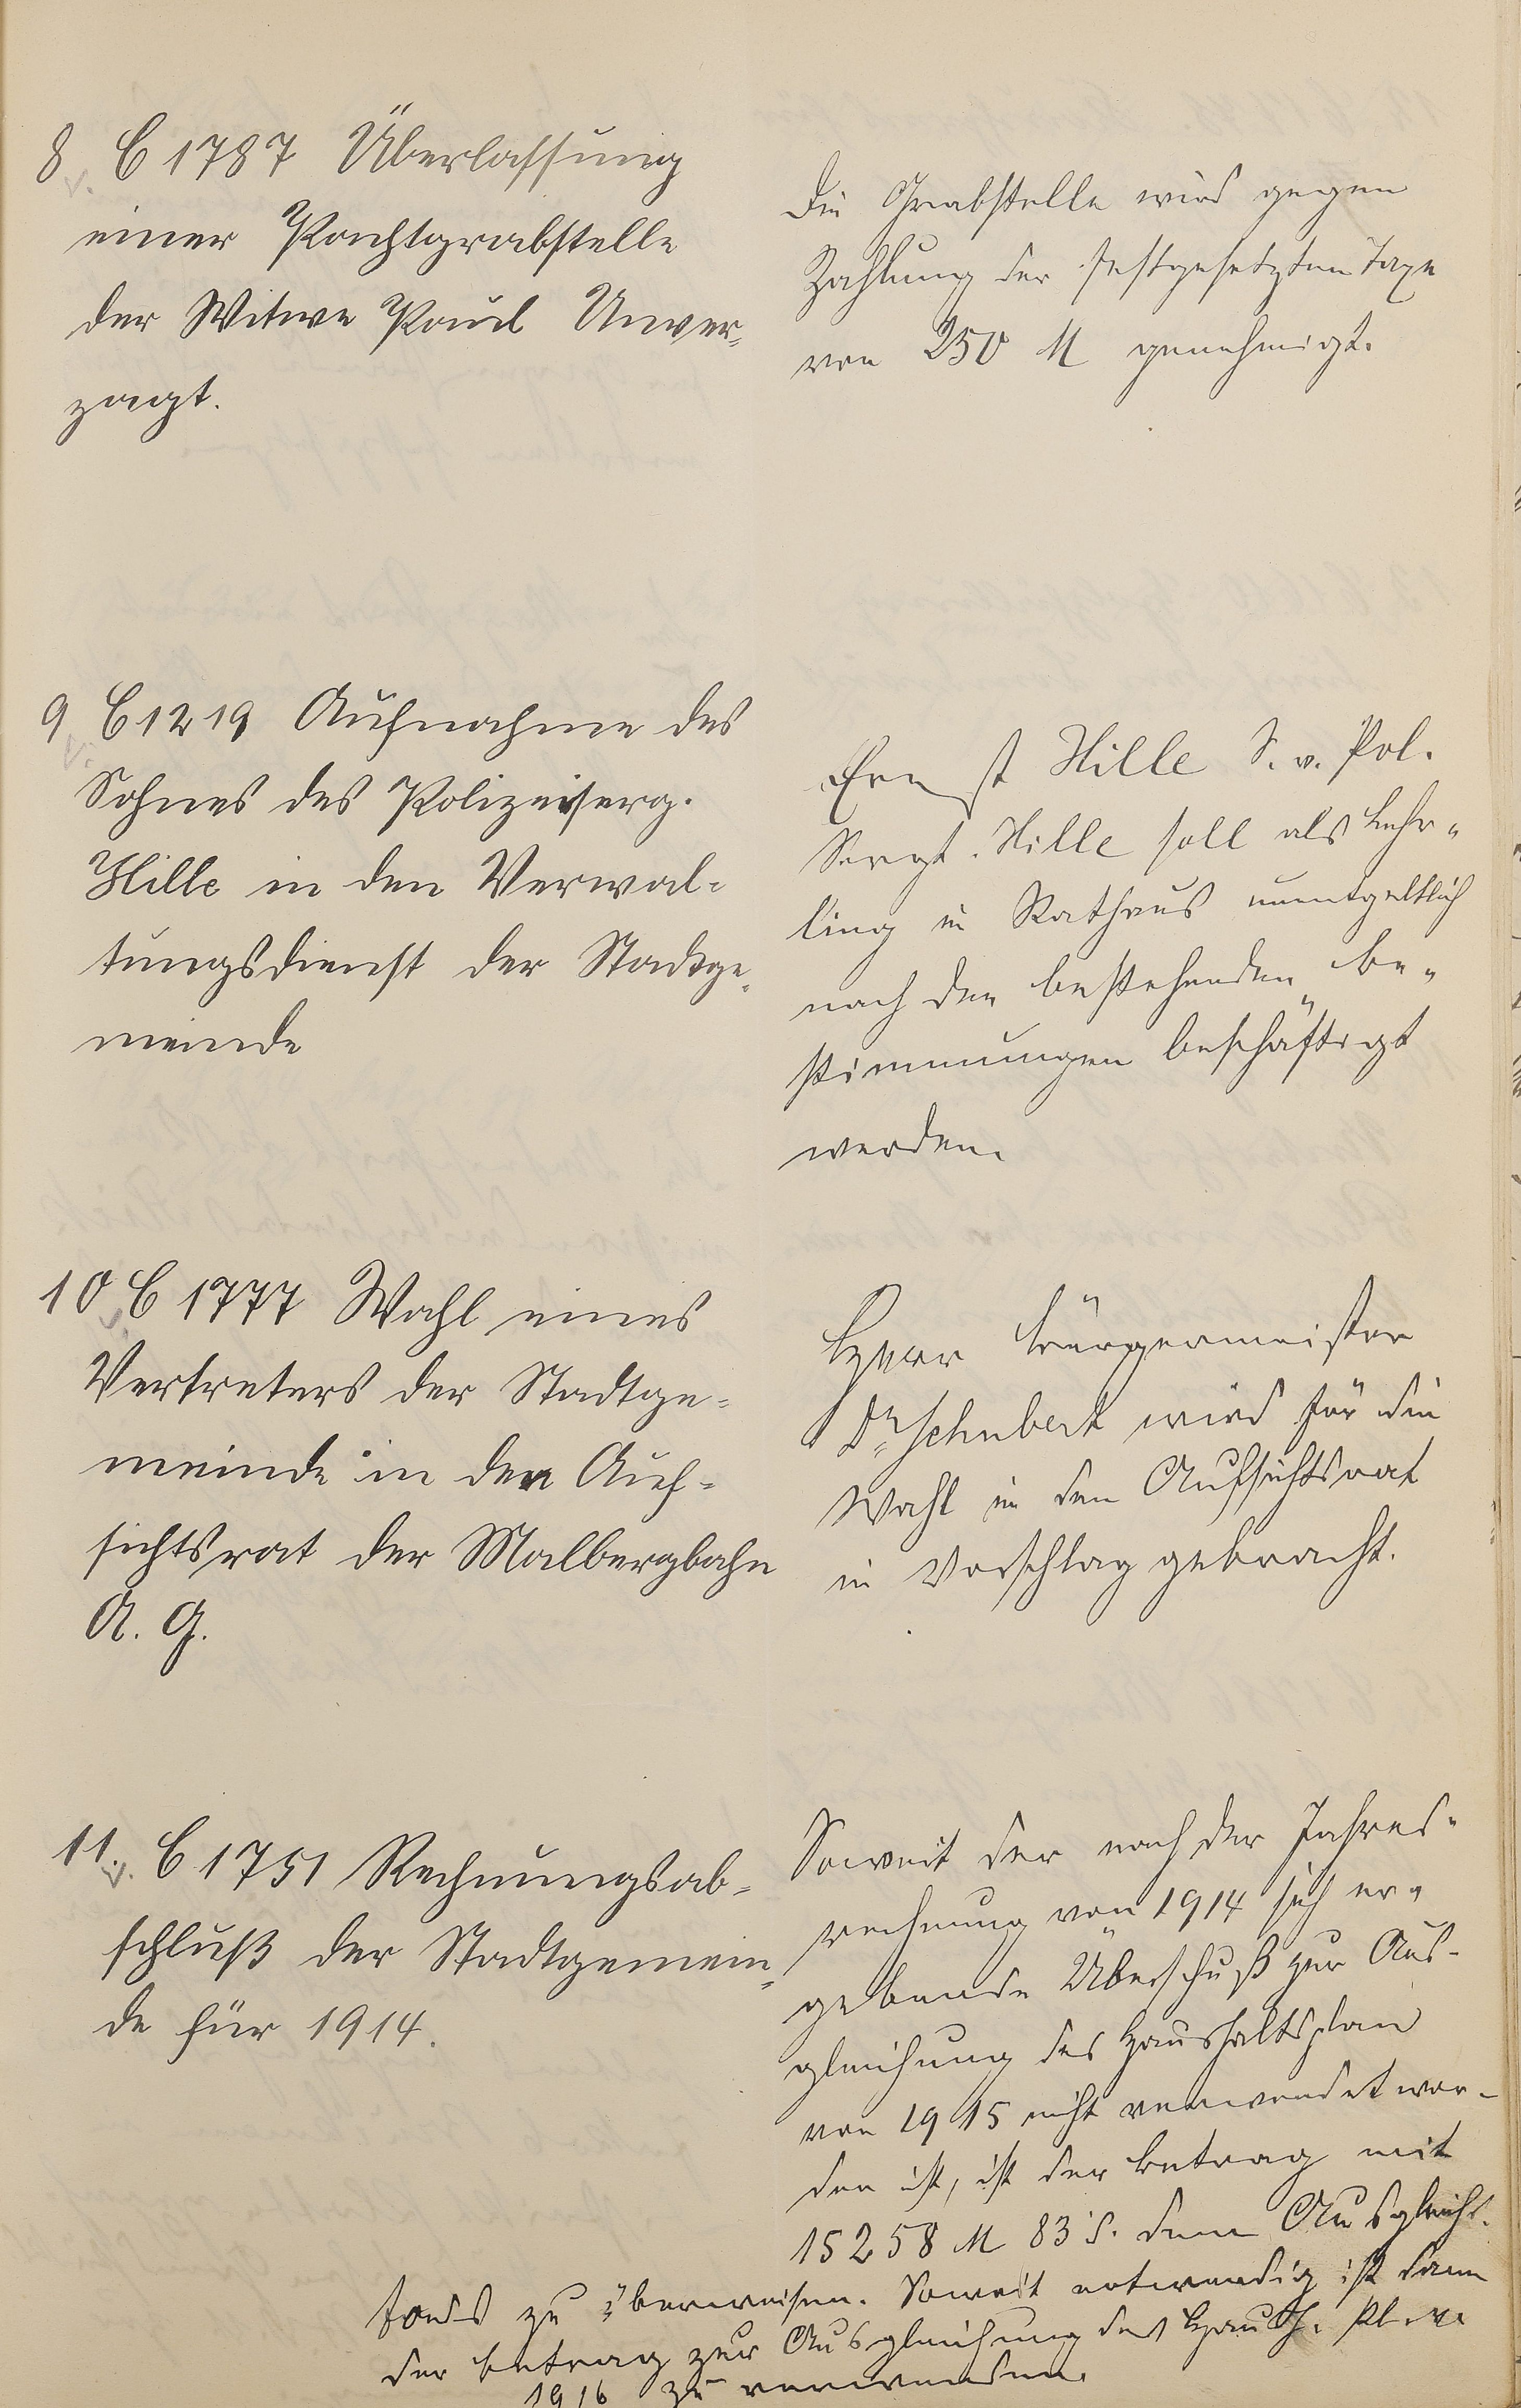 8 C 1787 Überlassung
einer Pachtgrabstelle
der Witwe Paul Unver-
zagt.
Die Grabstelle wird gegen
Zahlung der festgesetzten Taxe
von 250 M genehmigt.
9 C 1219 Aufnahme des
Sohnes des Polizeiserg.
Hille in den Verwal-
tungsdienst der Stadtge-
meinde
Ernst Hille S. v. Pol.
Sergt. Hille soll als Lehr-
ling in Rathaus unentgeltlich
nach den bestehenden Be-
stimmungen beschäftigt
werden.
10 C 1777 Wahl eines
Vertreters der Stadtge-
meinde in den Auf-
sichtsrat der Malbergbahn
A. G.
Herr Bürgermeister
Dr Schubert wird für die
Wahl in den Aufsichtsrat
in Vorschlag gebracht.
11. C 1751 Rechnungsab-
schluß der Stadtgemein-
de für 1914.
Soweit der nach der Jahres-
rechnung von 1914 sich er-
gebende Überschuß zur Aus-
gleichung des Haushaltsplan
von 1915 nicht verwendet wor-
den ist, ist der Betrag mit
15258 M 83 d. dem Ausgleichs-
fonds zu überweisen. Soweit notwendig ist dann
der Betrag zur Ausgleichung des Haush. Pl. v.
1916 zu verwenden.